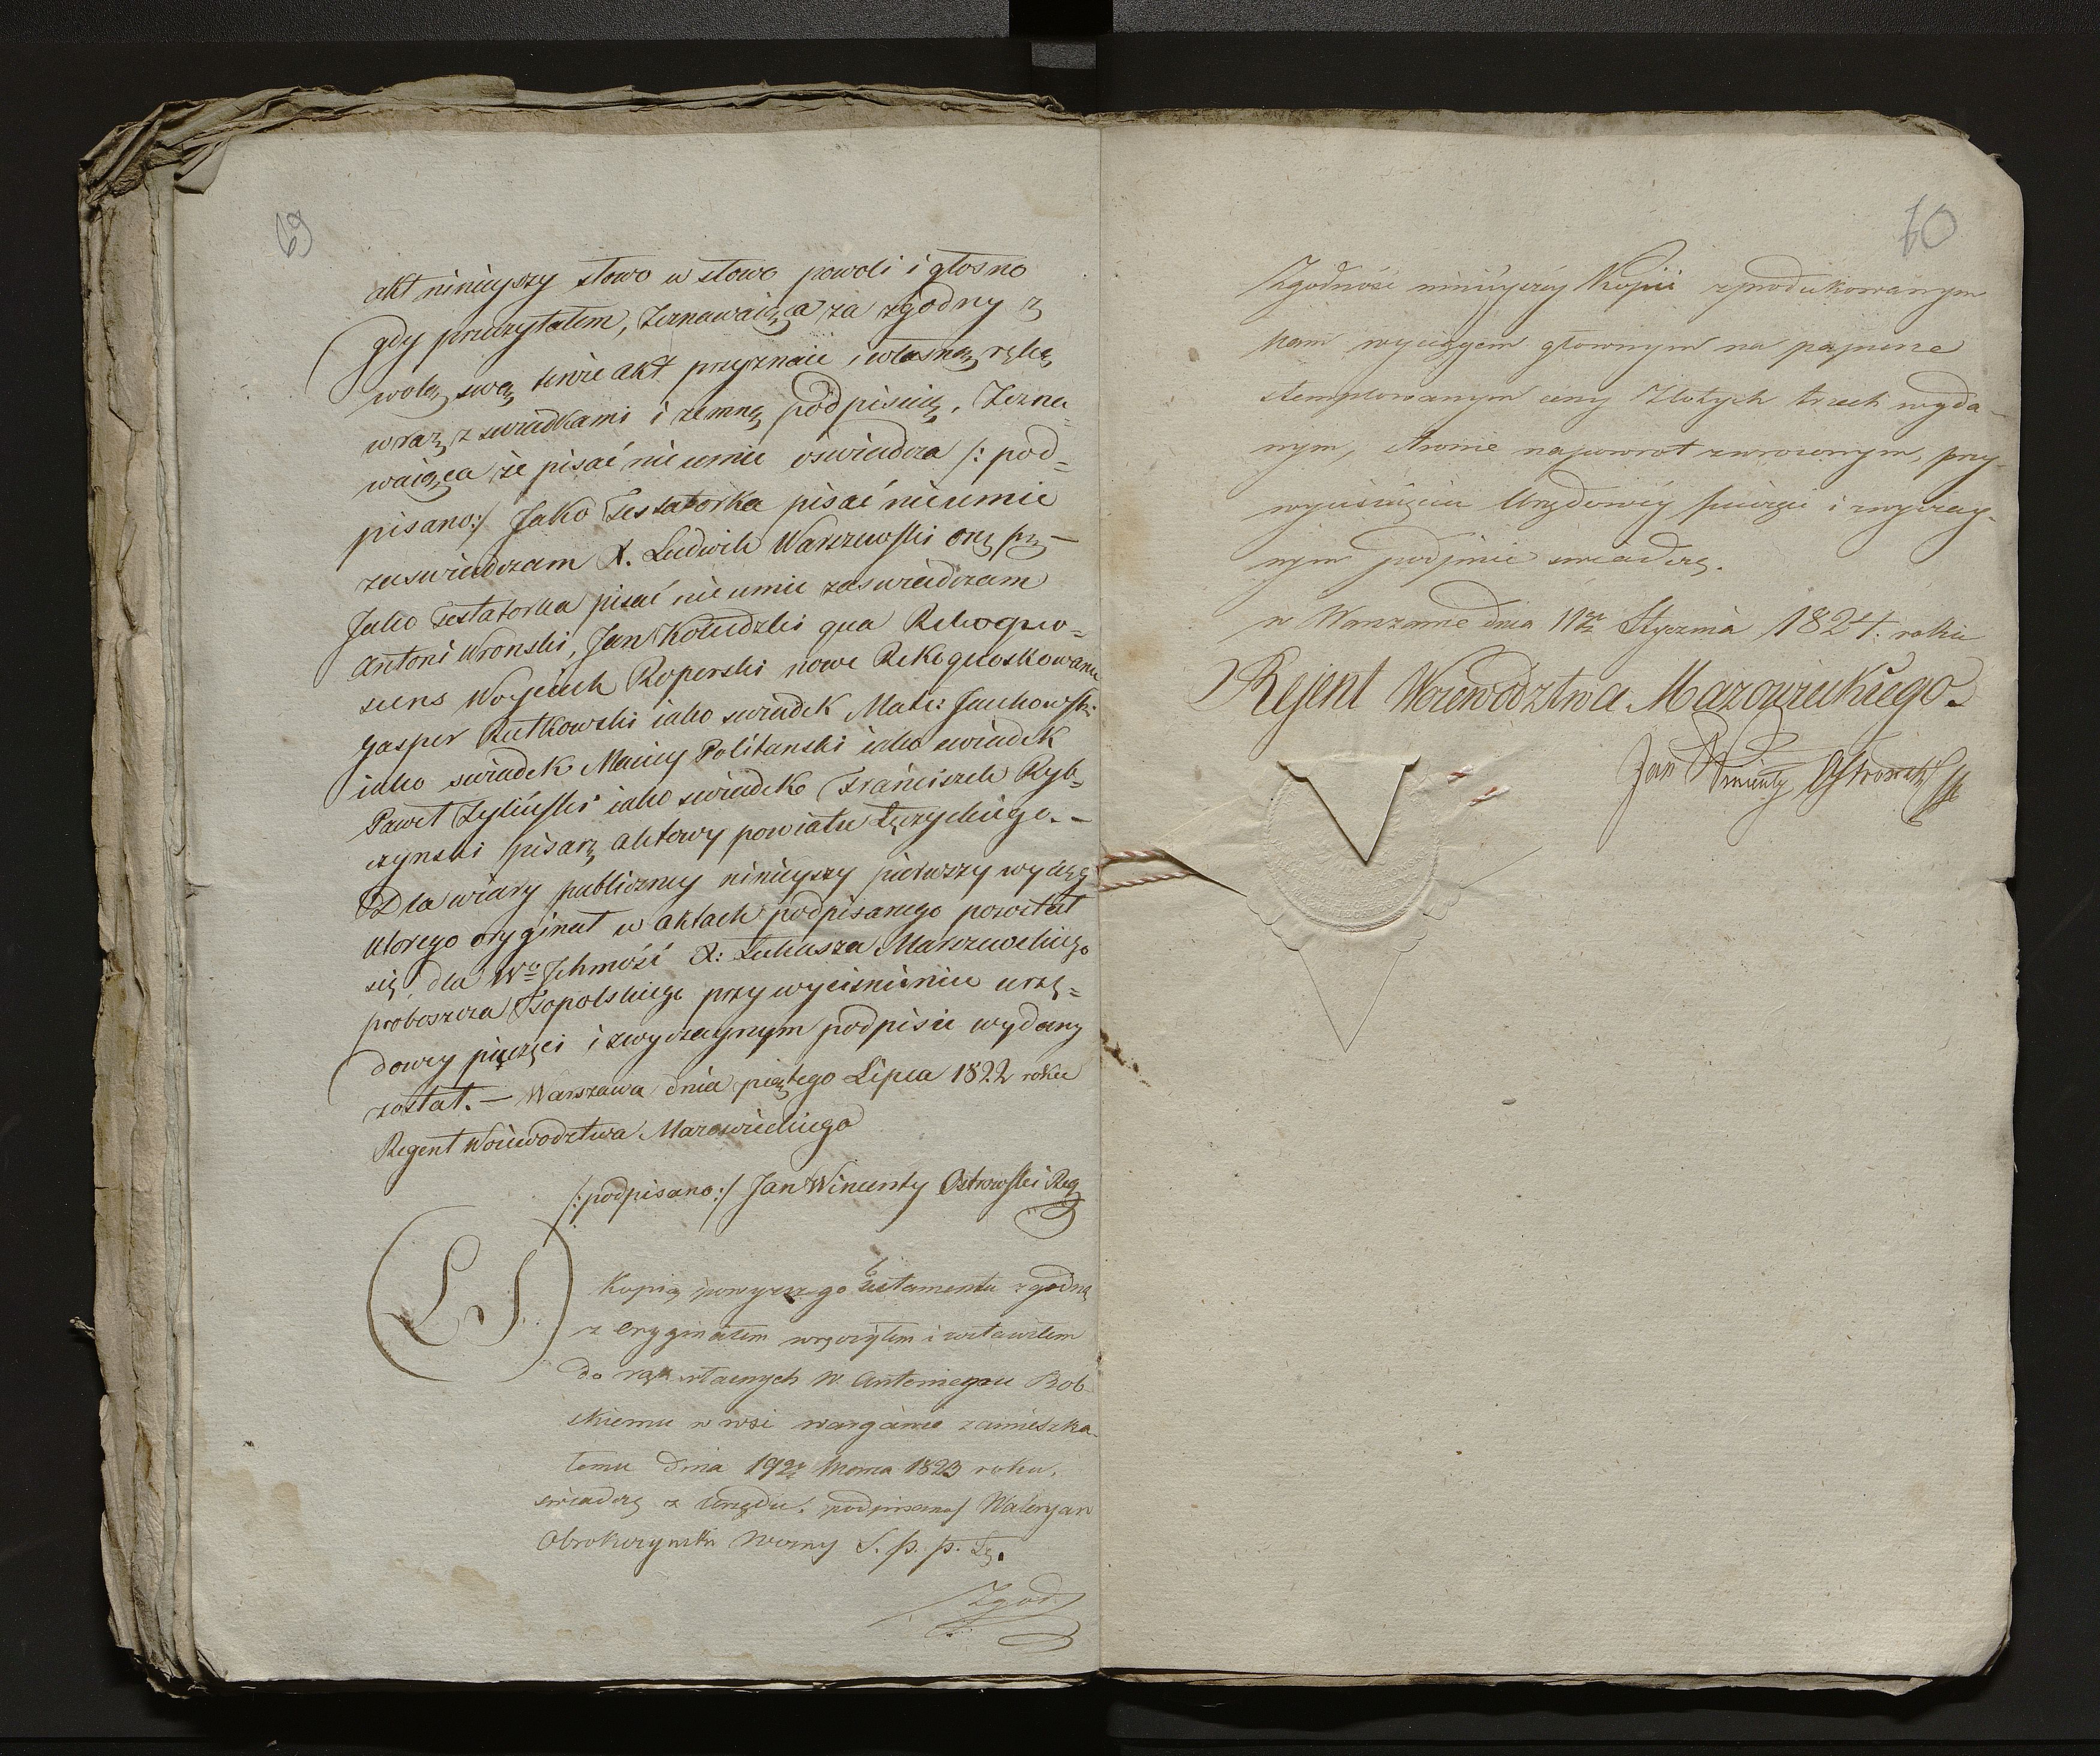 69
akt ninieyszy słowo w słowo powoli i głosno
gdy przeczytałem, Zeznawaiąca za zgodny z
wolą swą tenże akt przyznaie i własną ręką
wraz z swiadkami i zemną podpisuią, Zezna-
waiąca że pisać nie umie oswiadcza /: pod=
pisano:/ Jako Testatorka pisać nieumie
zaswiadczam X. Ludwik Warszewski
Jako Testatorka pisać nie umie zaswiadczam
Antoni Wronski, Jan Kołudzki qua Rekogno=
scens Woyciech Roperski
Gasper Rutkowski iako swiadek Mate:
iako swiadek Maciey Politanski iako swiadek
Paweł Zyliński iako swiadek Franciszek Ryb=
czynski pisarz aktowy powiatu Łęczyckiego.—
Dla wiary publiczney ninieyszy pierwszy wyciąg
ktorego oryginał w aktach podpisanego pozostał
się dla Wo Jchmość X: Łukasza Marszewskiego
proboszcza Topolskiego przy wycisnienie urzę=
dowey pięczęci i zwyczaynym podpisie wydany
został.— Warszawa dnia piątego Lipca 1822 roku
Regent Woiewodztwa Mazowieckiego
/:podpisano:/ Jan Wincenty Ostrowski Reg
(L S.)
Kopią powyższego testamentu zgodną
z oryginałem wręczyłem i zostawiłem
do rąk własnych W. Antoniemu Bob
skiemu w wsi zamieszka-
łemu dnia 19 Marca 1823 roku,
swiadczę z Urzędu. podpisano/ Waleryan
Obrokczynski Wozny S. p. p. Łę.
Zgod
70
Zgodność ninieyszey Kopii zprodukowanym
nam wyciągiem głownym na papierze
stemplowanym ceny Złotych trzech wyda-
nym, stronie napowrot zwroconym, przy
wycisnięciu Urzędowey pieczęci i zwyczay-
nym podpisie swiadczę.
w Warszawie dnia 11go Stycznia 1824. roku
Rejent Woiewództwa Mazowieckiego.
Jan Wincenty Ostrowski